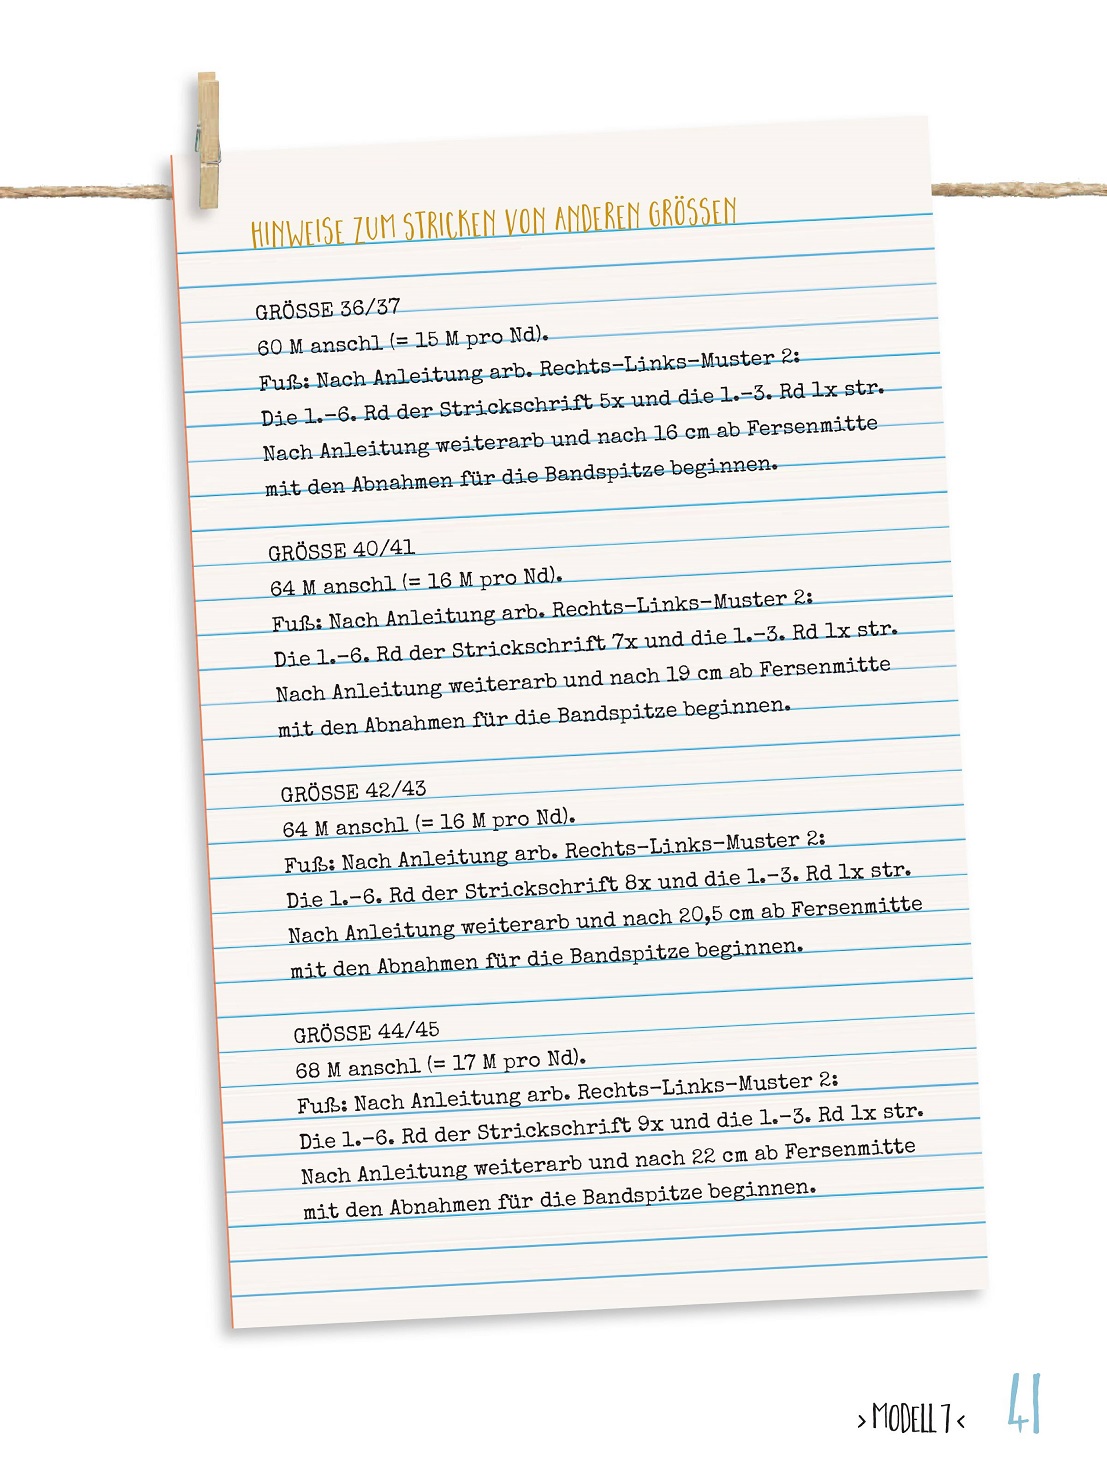 HINWEISE ZUM STRICKEN VON ANDEREN GRÖSSEN
GRÖSSE 36/37
60 M anschl (= 15 M pro Nd).
Fuß: Nach Anleitung arb. Rechts-Links-Muster 2:
Die 1.-6. Rd der Strickschrift 5x und die 1.-3. Rd 1x str.
Nach Anleitung weiterarb und nach 16 cm ab Fersenmitte
mit den Abnahmen für die Bandspitze beginnen.
GRÖSSE 40/41
64 M anschl (= 16 M pro Nd).
Fuß: Nach Anleitung arb. Rechts-Links-Muster 2:
Die 1.-6. Rd der Strickschrift 7x und die 1.-3. Rd 1x str.
Nach Anleitung weiterarb und nach 19 cm ab Fersenmitte
mit den Abnahmen für die Bandspitze beginnen.
GRÖSSE 42/43
64 M anschl (= 16 M pro Nd).
Fuß: Nach Anleitung arb. Rechts-Links-Muster 2:
Die 1.-6. Rd der Strickschrift 8x und die 1.-3. Rd 1x str.
Nach Anleitung weiterarb und nach 20,5 cm ab Fersenmitte
mit den Abnahmen für die Bandspitze beginnen.
GRÖSSE 44/45
68 M anschl (= 17 M pro Nd).
Fuß: Nach Anleitung arb. Rechts-Links-Muster 2:
Die 1.-6. Rd der Strickschrift 9x und die 1.-3. Rd 1x str.
Nach Anleitung weiterarb und nach 22 cm ab Fersenmitte
mit den Abnahmen für die Bandspitze beginnen.
> MODELL 7 < 41